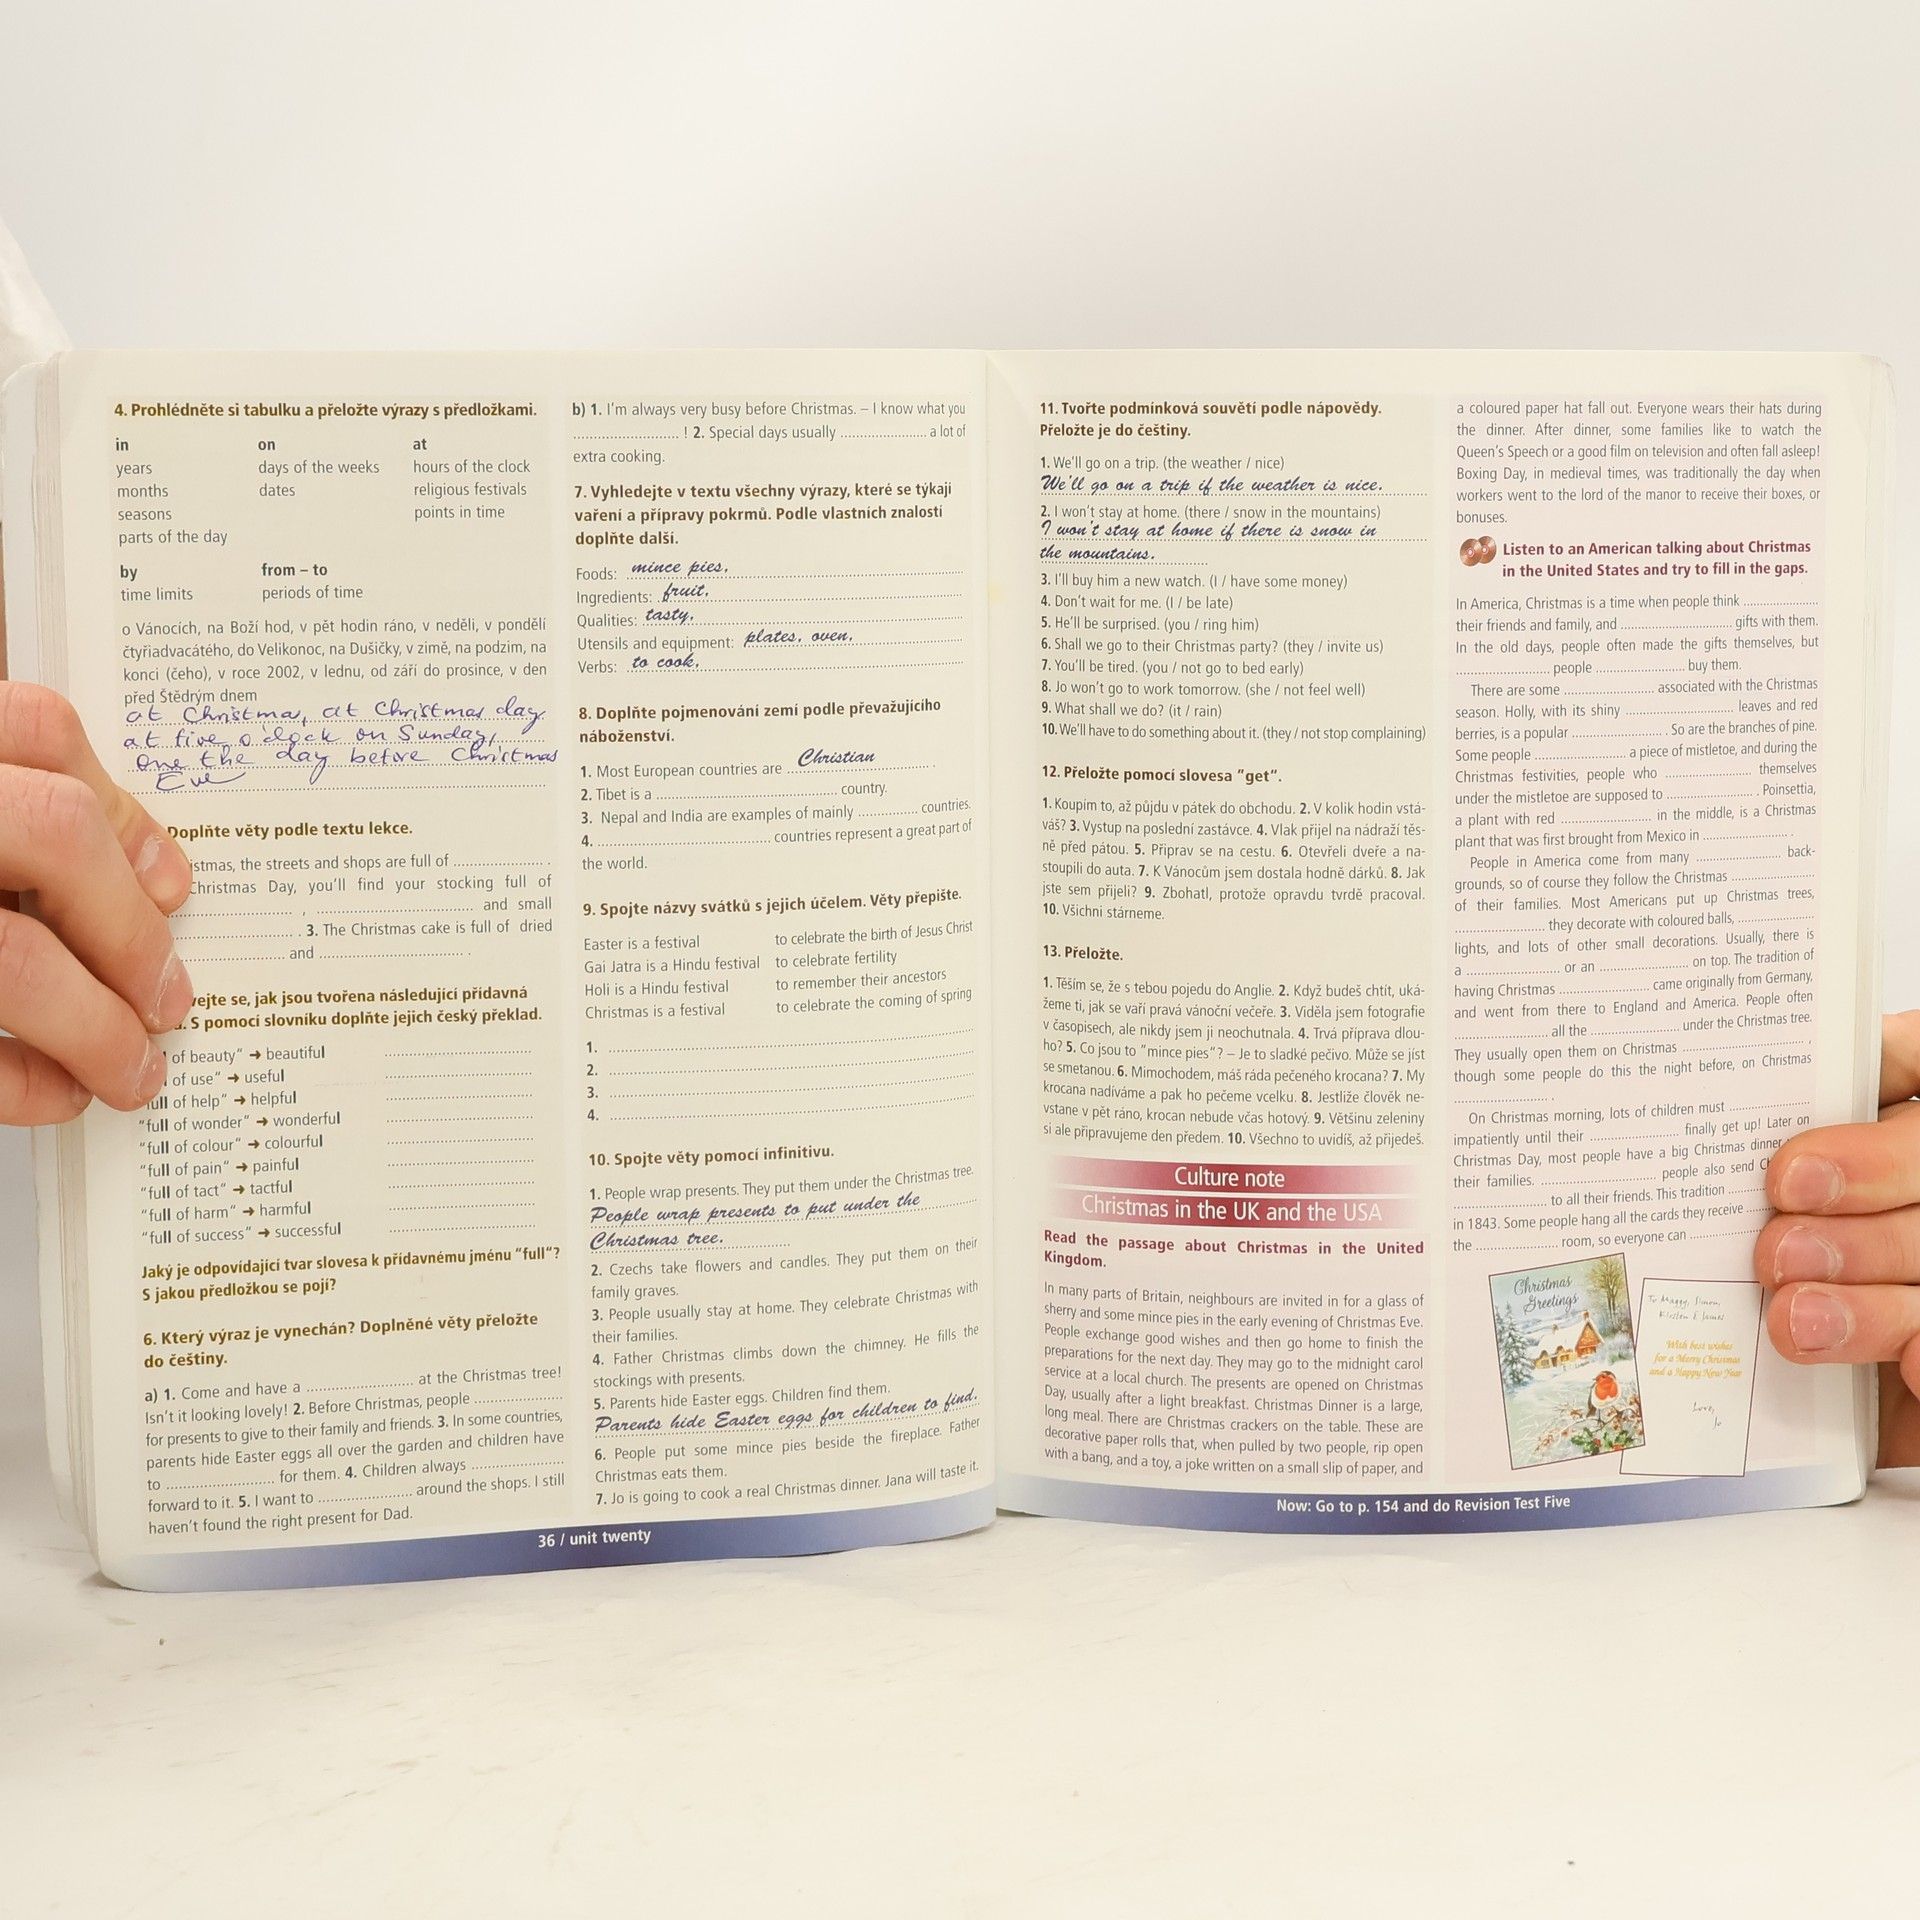 4. Prohlédněte si tabulku a přeložte výrazy s předložkami.
in on at
years days of the weeks hours of the clock
months dates religious festivals
seasons points in time
parts of the day
by from – to
time limits periods of time
o Vánocích, na Boží hod, v pět hodin ráno, v neděli, v pondělí
čtyřiadvacátého, do Velikonoc, na Dušičky, v zimě, na podzim, na
konci (čeho), v roce 2002, v lednu, od září do prosince, v den
před Štědrým dnem
at Christmas, at Christmas day
at five o'clock on Sunday,
one the day before Christmas
Eve
Doplňte věty podle textu lekce.
istmas, the streets and shops are full of .................... .
Christmas Day, you'll find your stocking full of
.................... , .................... and small
.................... . 3. The Christmas cake is full of dried
.................... and .................... .
vejte se, jak jsou tvořena následující přídavná
. S pomocí slovníku doplňte jejich český překlad.
of beauty" ➜ beautiful ....................
of use" ➜ useful ....................
full of help" ➜ helpful ....................
"full of wonder" ➜ wonderful ....................
"full of colour" ➜ colourful ....................
"full of pain" ➜ painful ....................
"full of tact" ➜ tactful ....................
"full of harm" ➜ harmful ....................
"full of success" ➜ successful ....................
Jaký je odpovídající tvar slovesa k přídavnému jménu "full"?
S jakou předložkou se pojí?
6. Který výraz je vynechán? Doplněné věty přeložte
do češtiny.
a) 1. Come and have a .................... at the Christmas tree!
Isn't it looking lovely! 2. Before Christmas, people ....................
for presents to give to their family and friends. 3. In some countries,
parents hide Easter eggs all over the garden and children have
to .................... for them. 4. Children always ....................
forward to it. 5. I want to .................... around the shops. I still
haven't found the right present for Dad.
b) 1. I'm always very busy before Christmas. – I know what you
.................... ! 2. Special days usually .................... a lot of
extra cooking.
7. Vyhledejte v textu všechny výrazy, které se týkají
vaření a přípravy pokrmů. Podle vlastních znalostí
doplňte další.
Foods: mince pies,
Ingredients: fruit,
Qualities: tasty,
Utensils and equipment: plates, oven,
Verbs: to cook,
8. Doplňte pojmenování zemí podle převažujícího
náboženství.
1. Most European countries are Christian .
2. Tibet is a .................... country.
3. Nepal and India are examples of mainly .................... countries.
4. .................... countries represent a great part of
the world.
9. Spojte názvy svátků s jejich účelem. Věty přepište.
Easter is a festival to celebrate the birth of Jesus Christ
Gai Jatra is a Hindu festival to celebrate fertility
Holi is a Hindu festival to remember their ancestors
Christmas is a festival to celebrate the coming of spring
1. ....................
2. ....................
3. ....................
4. ....................
10. Spojte věty pomocí infinitivu.
1. People wrap presents. They put them under the Christmas tree.
People wrap presents to put under the
Christmas tree.
2. Czechs take flowers and candles. They put them on their
family graves.
3. People usually stay at home. They celebrate Christmas with
their families.
4. Father Christmas climbs down the chimney. He fills the
stockings with presents.
5. Parents hide Easter eggs. Children find them.
Parents hide Easter eggs for children to find.
6. People put some mince pies beside the fireplace. Father
Christmas eats them.
7. Jo is going to cook a real Christmas dinner. Jana will taste it.
36 / unit twenty
11. Tvořte podmínková souvětí podle nápovědy.
Přeložte je do češtiny.
1. We'll go on a trip. (the weather / nice)
We'll go on a trip if the weather is nice.
2. I won't stay at home. (there / snow in the mountains)
I won't stay at home if there is snow in
the mountains.
3. I'll buy him a new watch. (I / have some money)
4. Don't wait for me. (I / be late)
5. He'll be surprised. (you / ring him)
6. Shall we go to their Christmas party? (they / invite us)
7. You'll be tired. (you / not go to bed early)
8. Jo won't go to work tomorrow. (she / not feel well)
9. What shall we do? (it / rain)
10. We'll have to do something about it. (they / not stop complaining)
12. Přeložte pomocí slovesa "get".
1. Koupím to, až půjdu v pátek do obchodu. 2. V kolik hodin vstá-
váš? 3. Vystup na poslední zastávce. 4. Vlak přijel na nádraží těs-
ně před pátou. 5. Připrav se na cestu. 6. Otevřeli dveře a na-
stoupili do auta. 7. K Vánocům jsem dostala hodně dárků. 8. Jak
jste sem přijeli? 9. Zbohatl, protože opravdu tvrdě pracoval.
10. Všichni stárneme.
13. Přeložte.
1. Těším se, že s tebou pojedu do Anglie. 2. Když budeš chtít, uká-
žeme ti, jak se vaří pravá vánoční večeře. 3. Viděla jsem fotografie
v časopisech, ale nikdy jsem ji neochutnala. 4. Trvá příprava dlou-
ho? 5. Co jsou to "mince pies"? – Je to sladké pečivo. Může se jíst
se smetanou. 6. Mimochodem, máš ráda pečeného krocana? 7. My
krocana nadíváme a pak ho pečeme vcelku. 8. Jestliže člověk ne-
vstane v pět ráno, krocan nebude včas hotový. 9. Většinu zeleniny
si ale připravujeme den předem. 10. Všechno to uvidíš, až přijedeš.
Culture note
Christmas in the UK and the USA
Read the passage about Christmas in the United
Kingdom.
In many parts of Britain, neighbours are invited in for a glass of
sherry and some mince pies in the early evening of Christmas Eve.
People exchange good wishes and then go home to finish the
preparations for the next day. They may go to the midnight carol
service at a local church. The presents are opened on Christmas
Day, usually after a light breakfast. Christmas Dinner is a large,
long meal. There are Christmas crackers on the table. These are
decorative paper rolls that, when pulled by two people, rip open
with a bang, and a toy, a joke written on a small slip of paper, and
a coloured paper hat fall out. Everyone wears their hats during
the dinner. After dinner, some families like to watch the
Queen's Speech or a good film on television and often fall asleep!
Boxing Day, in medieval times, was traditionally the day when
workers went to the lord of the manor to receive their boxes, or
bonuses.
Listen to an American talking about Christmas
in the United States and try to fill in the gaps.
In America, Christmas is a time when people think ....................
their friends and family, and .................... gifts with them.
In the old days, people often made the gifts themselves, but
.................... people .................... buy them.
There are some .................... associated with the Christmas
season. Holly, with its shiny .................... leaves and red
berries, is a popular .................... . So are the branches of pine.
Some people .................... a piece of mistletoe, and during the
Christmas festivities, people who .................... themselves
under the mistletoe are supposed to .................... . Poinsettia,
a plant with red .................... in the middle, is a Christmas
plant that was first brought from Mexico in .................... .
People in America come from many .................... back-
grounds, so of course they follow the Christmas ....................
of their families. Most Americans put up Christmas trees,
.................... they decorate with coloured balls, ....................
lights, and lots of other small decorations. Usually, there is
a .................... or an .................... on top. The tradition of
having Christmas .................... came originally from Germany,
and went from there to England and America. People often
.................... all the .................... under the Christmas tree.
They usually open them on Christmas .................... ,
though some people do this the night before, on Christmas
.................... .
On Christmas morning, lots of children must ....................
impatiently until their .................... finally get up! Later on
Christmas Day, most people have a big Christmas dinner
their families. .................... people also send C
.................... to all their friends. This tradition ....................
in 1843. Some people hang all the cards they receive ....................
the .................... room, so everyone can ....................
Christmas
Greetings
To Maggy, Simon,
Kirsten & James
With best wishes
for a Merry Christmas
and a Happy New Year
Love,
Jo
Now: Go to p. 154 and do Revision Test Five